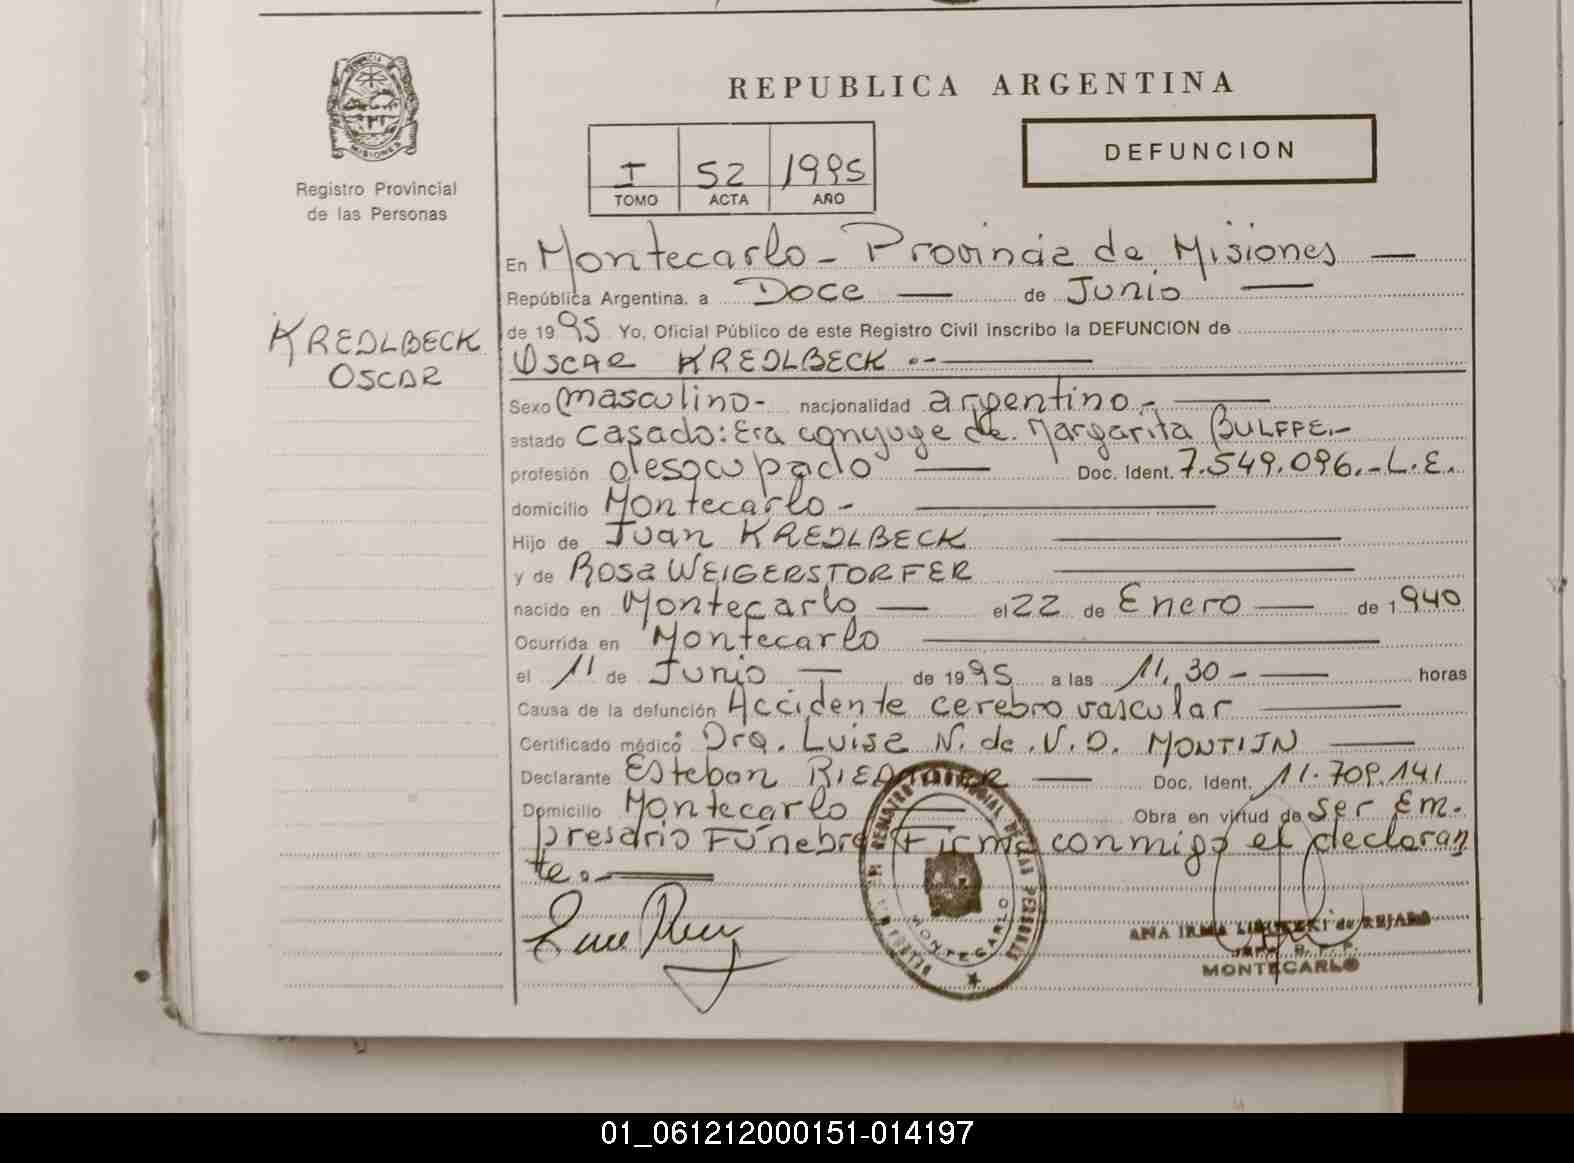 REPUBLICA ARGENTINA
PROVINCIA DE
MISIONES
Registro Provincial
de las Personas
I
52
1995
TOMO
ACTA
AÑO
DEFUNCION
En Montecarlo - Provincia de Misiones
República Argentina, a Doce de Junio
de 1995 Yo, Oficial Público de este Registro Civil inscribo la DEFUNCION de
OSCAR KREDLBECK
KREDLBECK
OSCAR
Sexo masculino- nacionalidad argentino.-
estado casado: Era conyuge de Margarita BULFPE.-
profesión desocupado Doc. Ident. 7.549.096.-L.E.
domicilio Montecarlo-
Hijo de Juan KREDLBECK
y de Rosa WEIGERSTORFER
nacido en Montecarlo el 22 de Enero de 1940
Ocurrida en Montecarlo
el 11 de Junio de 1995 a las 11,30- horas
Causa de la defunción Accidente cerebro vascular
Certificado médico Dra. Luisa N. de V.D. MONTIJN
Declarante Esteban Doc. Ident. 11.709.141
Domicilio Montecarlo Obra en virtud de ser Em-
presario Fúnebre Firma conmigo el declaran
te.
REGISTRO PROVINCIAL DE LAS PERSONAS
MONTECARLO
ANA IRMA de REJALA
MONTECARLO
01_061212000151-014197